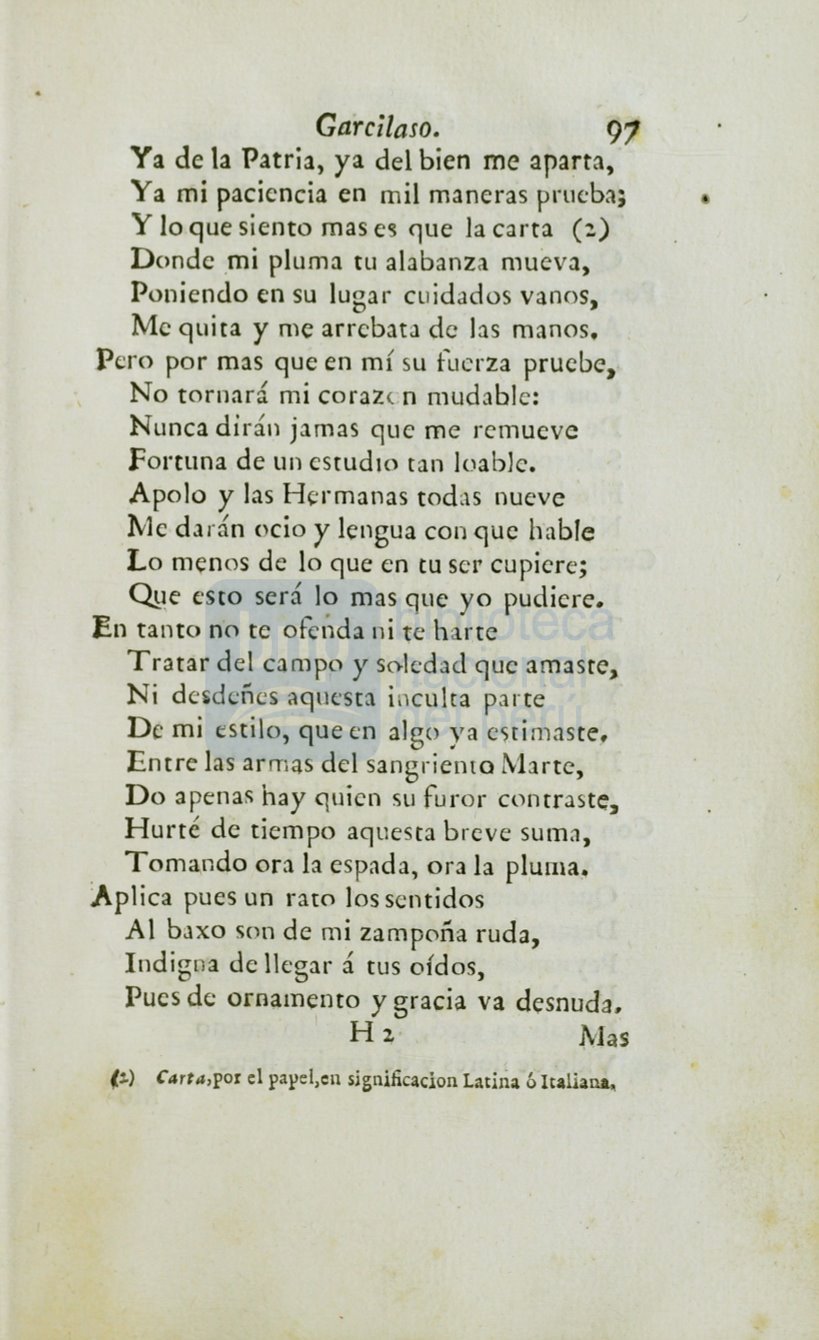 Garcilaso. 97
Ya de la Patria, ya del bien me aparta,
Ya mi paciencia en mil maneras prueba;
Y lo que siento mas es que la carta (2)
Donde mi pluma tu alabanza mueva,
Poniendo en su lugar cuidados vanos,
Me quita y me arrebata de las manos.
Pero por mas que en mí su fuerza pruebe,
No tornará mi corazon mudable:
Nunca dirán jamas que me remueve
Fortuna de un estudio tan loable.
Apolo y las Hermanas todas nueve
Me darán ocio y lengua con que hable
Lo menos de lo que en tu ser cupiere;
Que esto será lo mas que yo pudiere.
En tanto no te ofenda ni te harte
Tratar del campo y soledad que amaste,
Ni desdeñes aquesta inculta parte
De mi estilo, que en algo ya estimaste,
Entre las armas del sangriento Marte,
Do apenas hay quien su furor contraste,
Hurté de tiempo aquesta breve suma,
Tomando ora la espada, ora la pluma.
Aplica pues un rato los sentidos
Al baxo son de mi zampoña ruda,
Indigna de llegar á tus oídos,
Pues de ornamento y gracia va desnuda.
H 2 Mas
(2) Carta, por el papel, en significacion Latina ó Italiana.